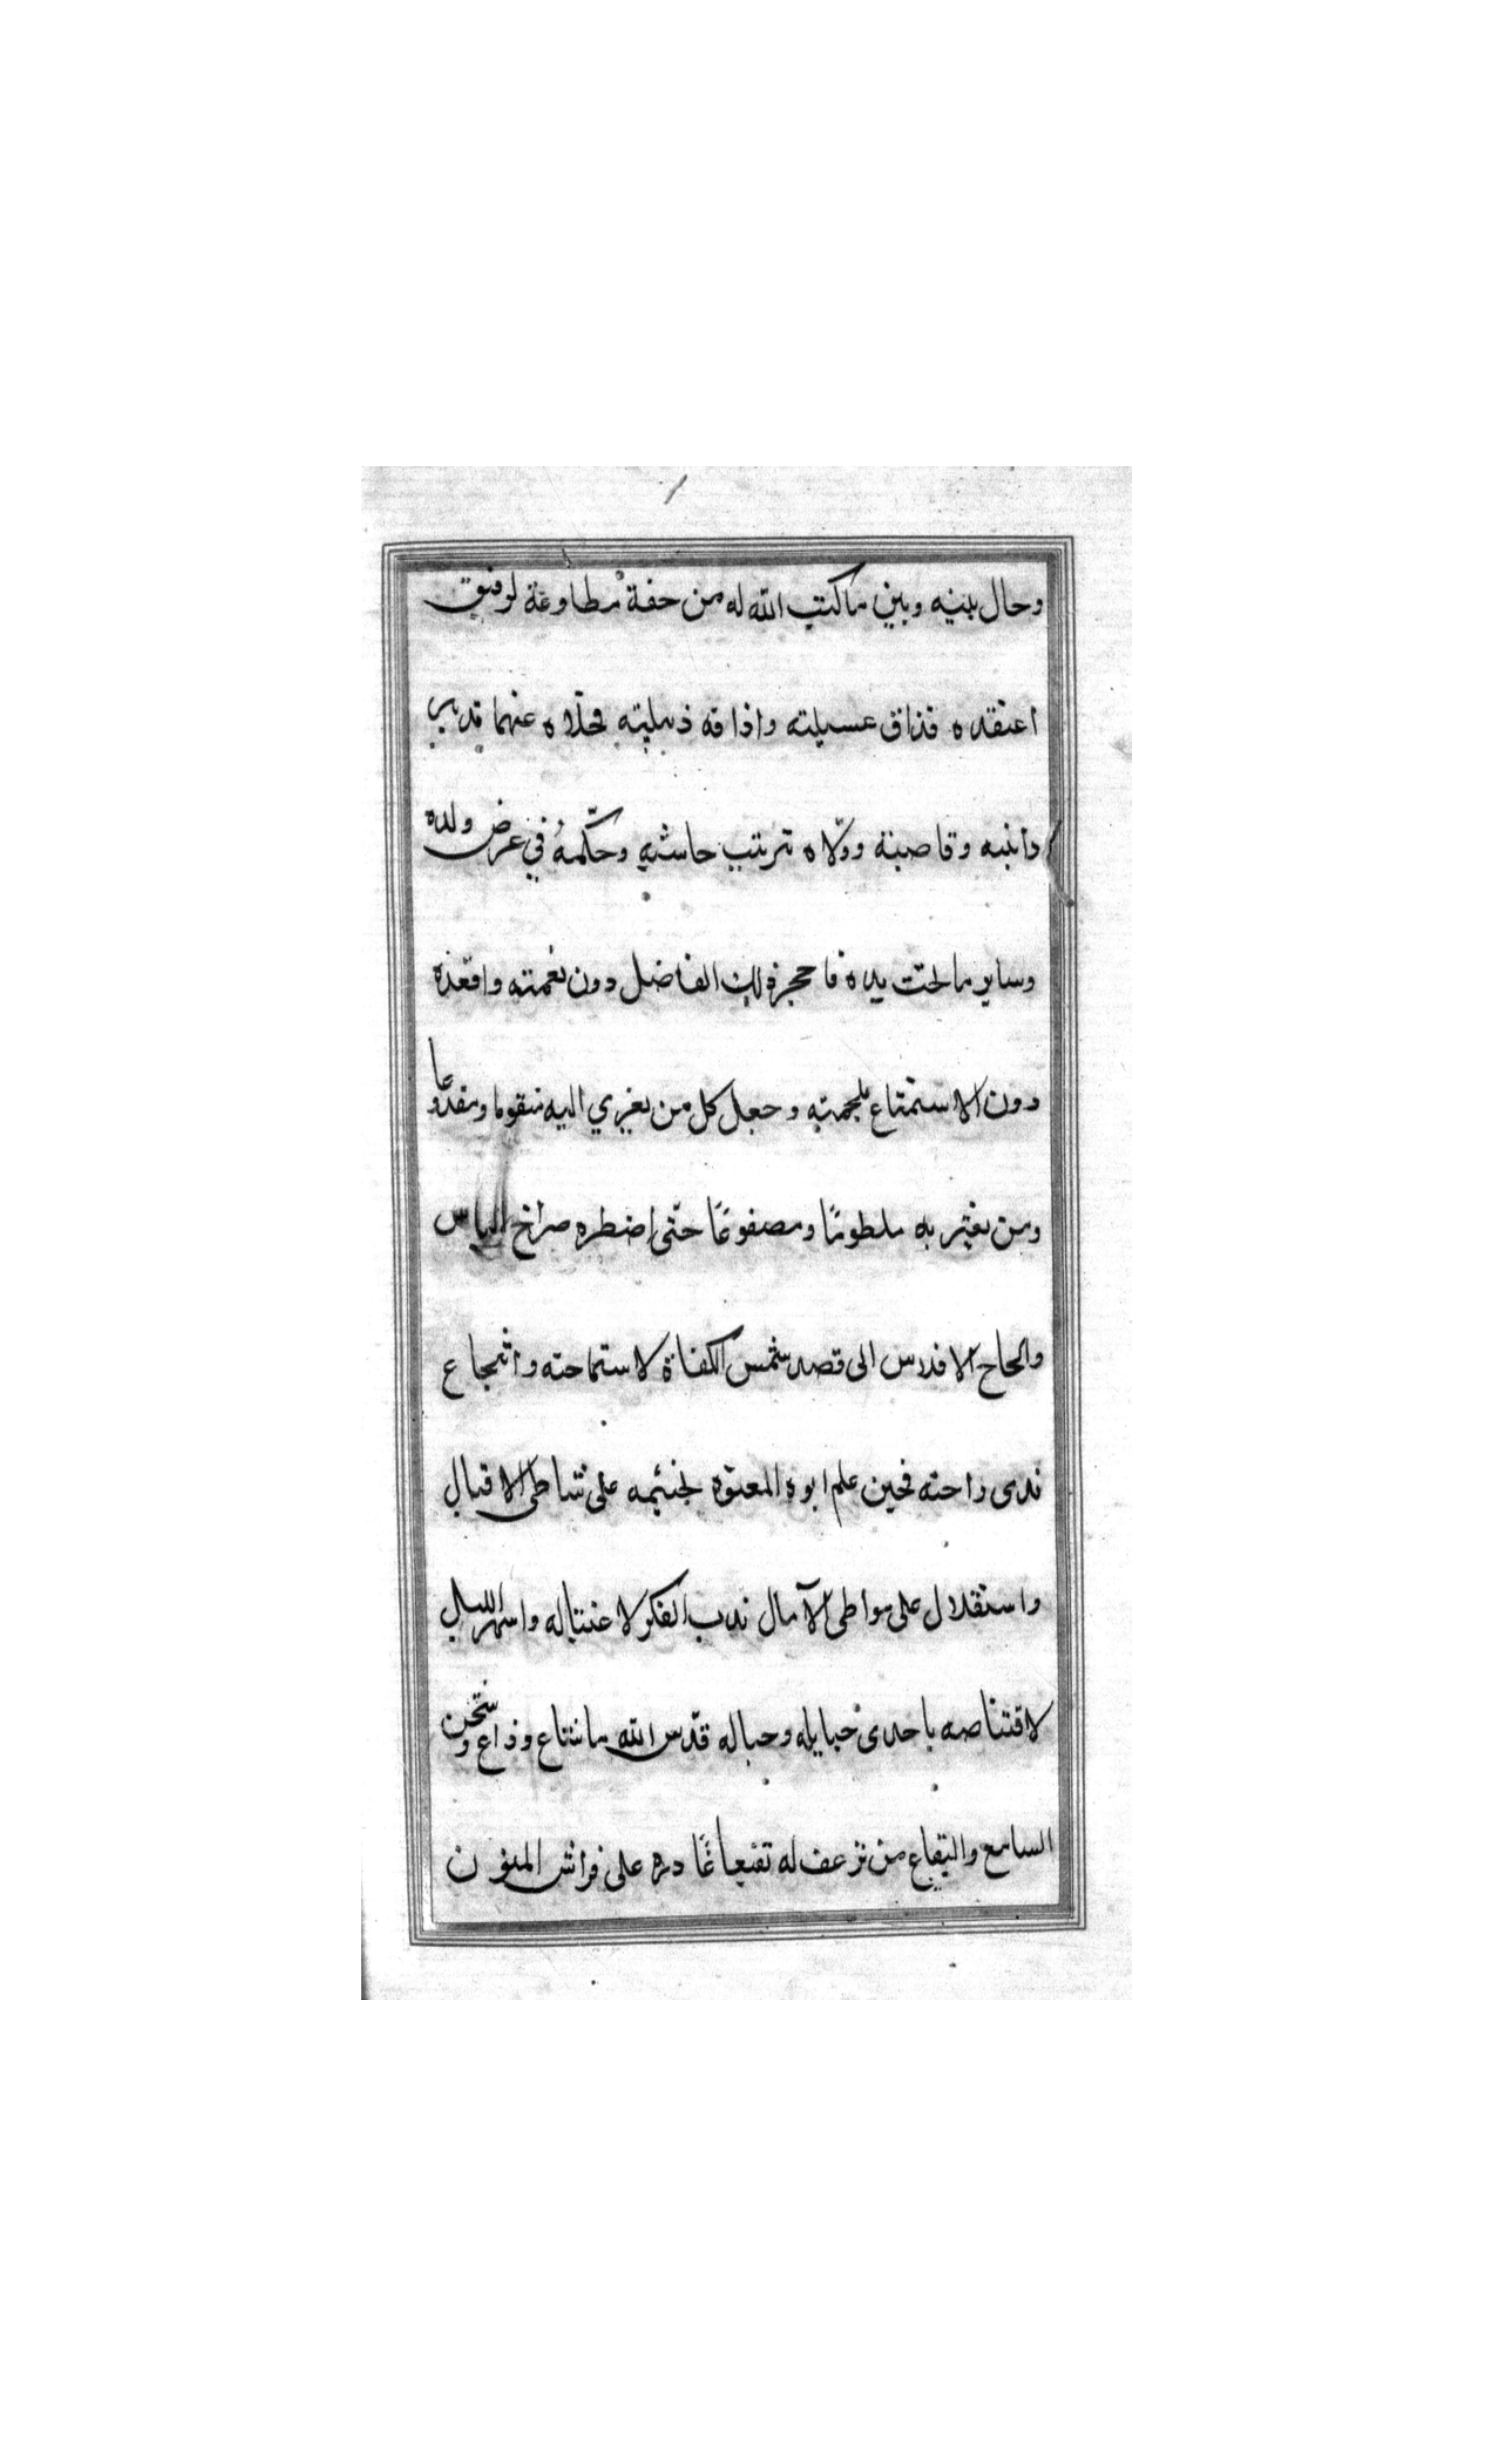 وحال بينه وبين ما كتب الله له من حفة مطاوعة لرفيق
اعتقده فذاق عسيلته واذاقه ذبيلته فحلاه عنهما قدس
دانيه وقاصيه وولاه ترتيب حاشيه وحكمه في عرض ولده
وساير ما تحت يده فاحجر ذلك الفاضل دون نعمته واقعده
دون الاستمتاع بلحمته وجعل كل من يعزي اليه منقوما ومفدوعا
ومن يعثر به ملطوما ومصفوعا حتى اضطره صراخ الياس
والحاح الافلاس الى قصد شمس الكفاة لاستماحته وانتجاع
ندى راحته فحين علم ابوه المعتوه بخيمه على شاطى الاقبال
واستقلال على مواطى الآمال ندب الفكر لاغتياله واسهر الليل
لاقتناصه باحدى حبايله وحباله قدس الله ما شاع وذاع وشحن
السامع والبقاع من ترعف له تقيعا غادره على فراش المنون